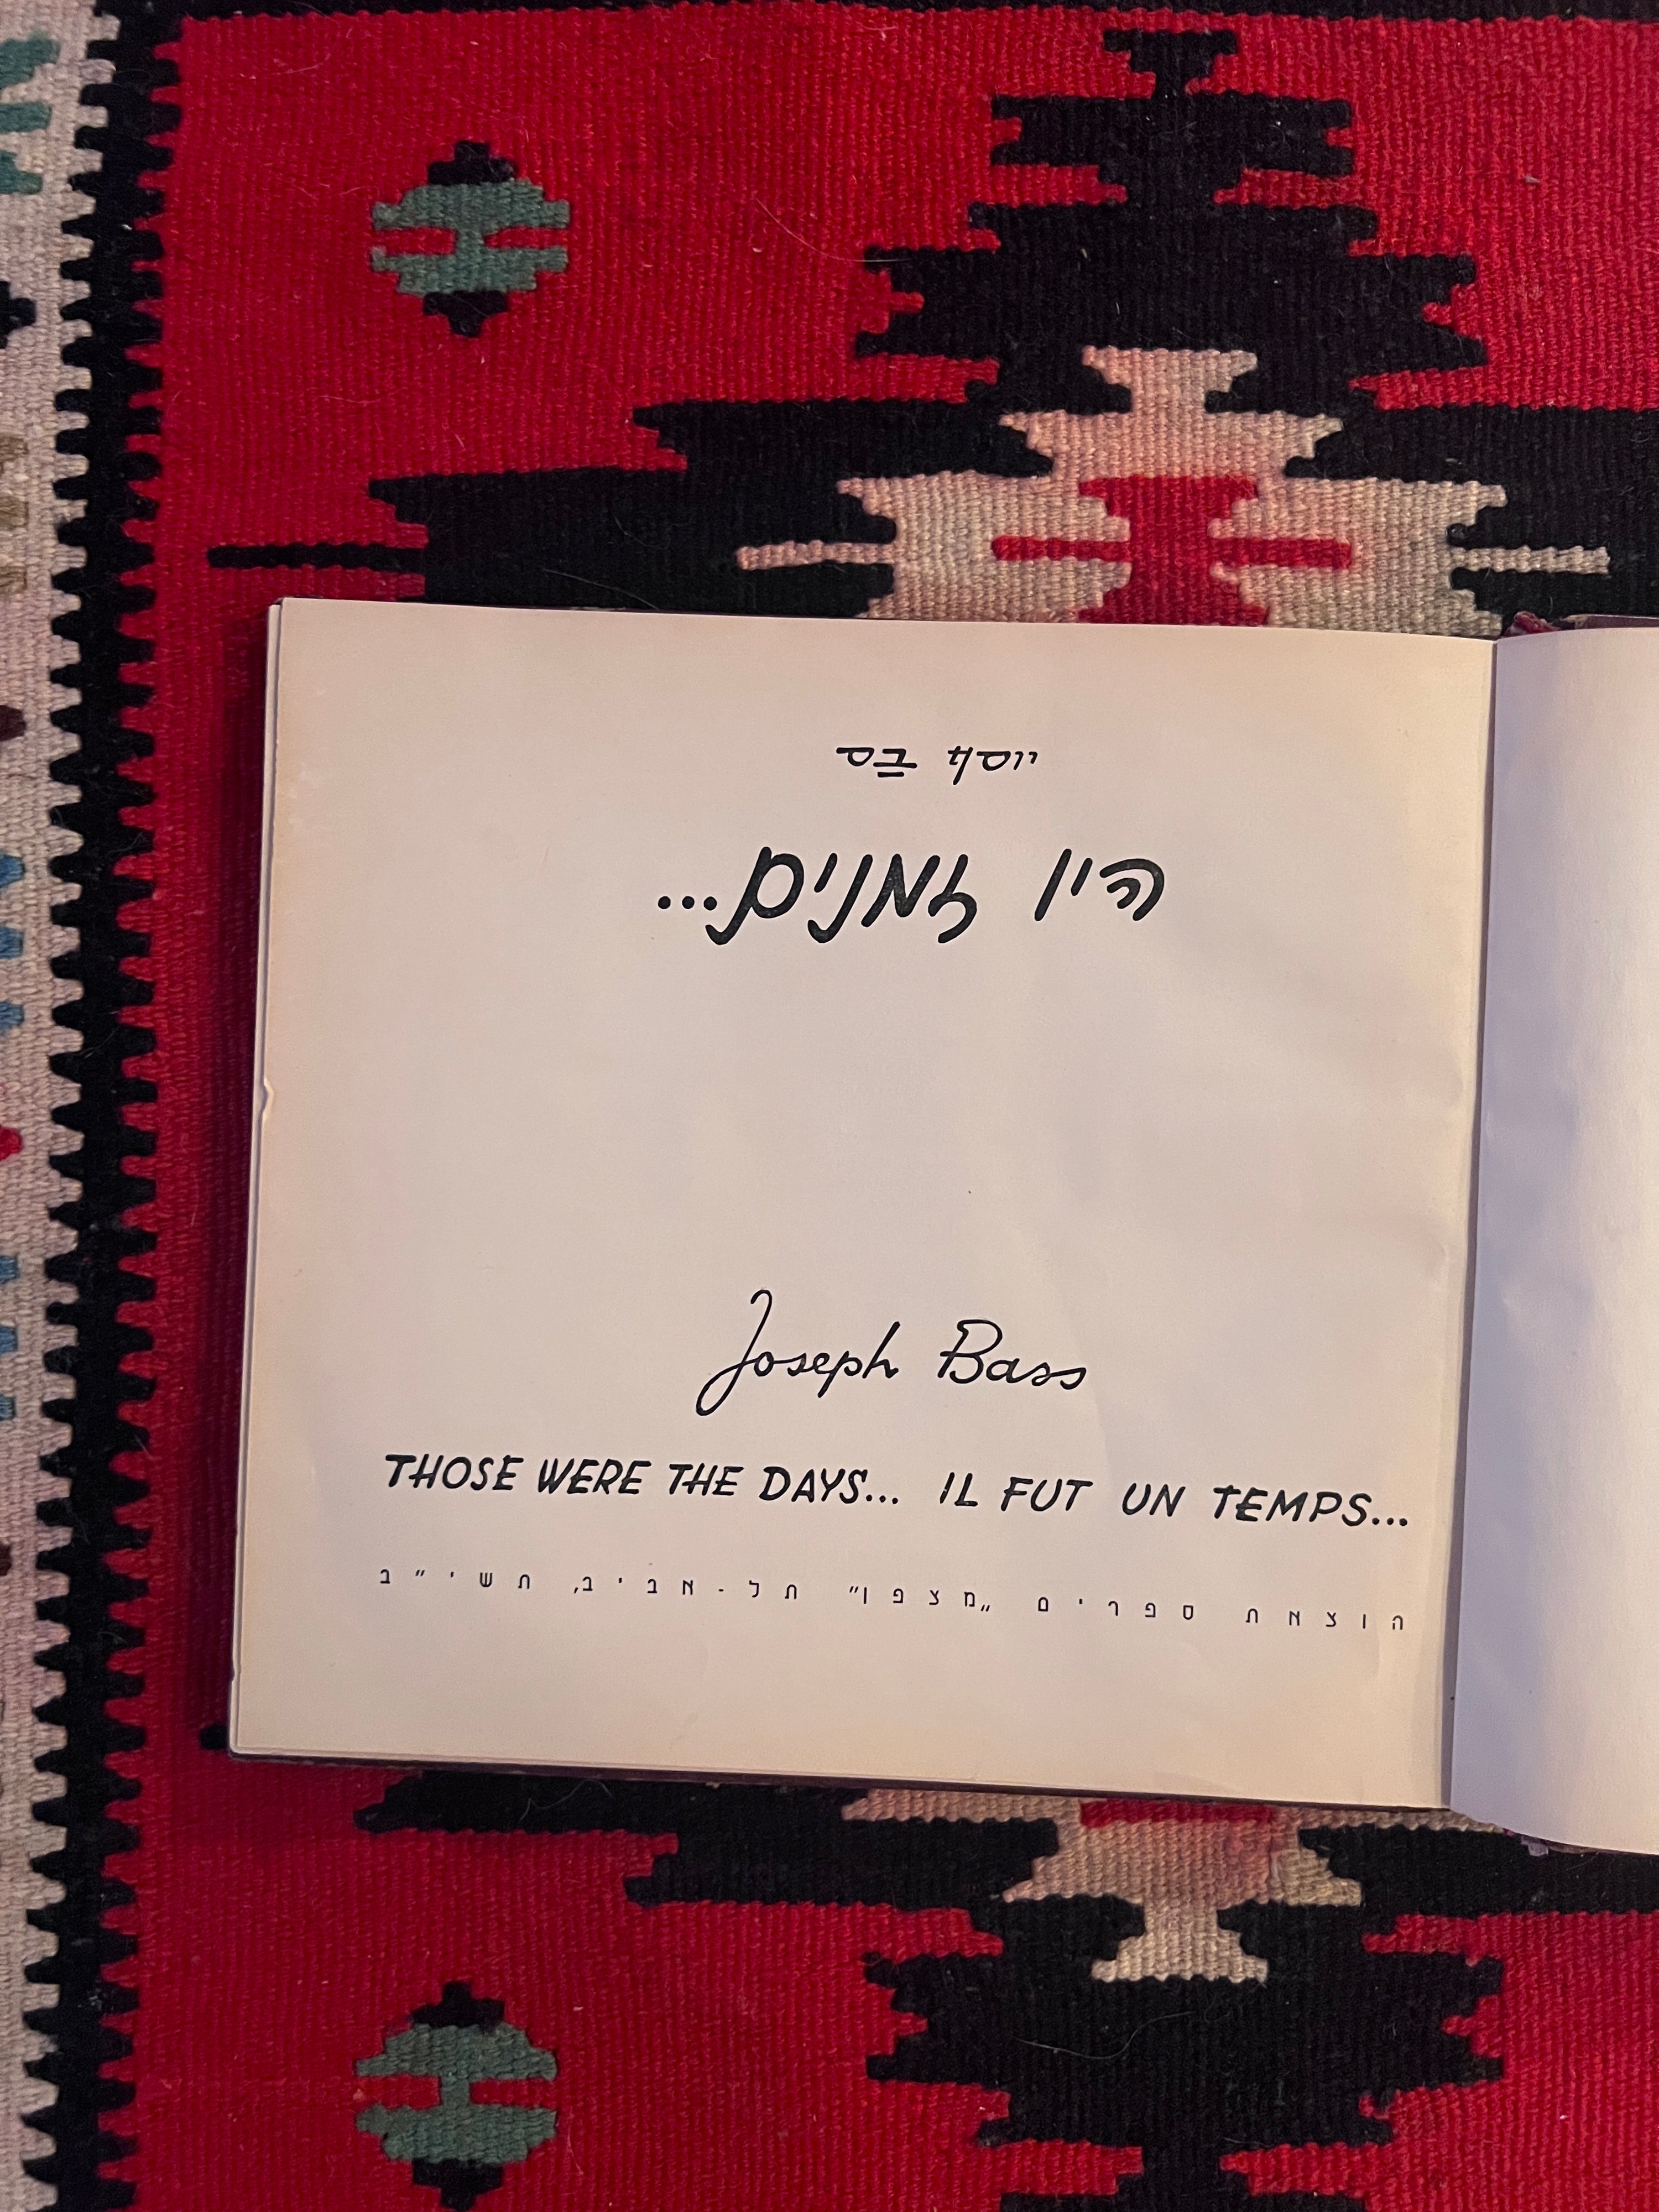 יוסף בס
היו זמנים...
Joseph Bass
THOSE WERE THE DAYS... IL FUT UN TEMPS...
הוצאת ספרים „מצפן” תל-אביב, תשי״ב